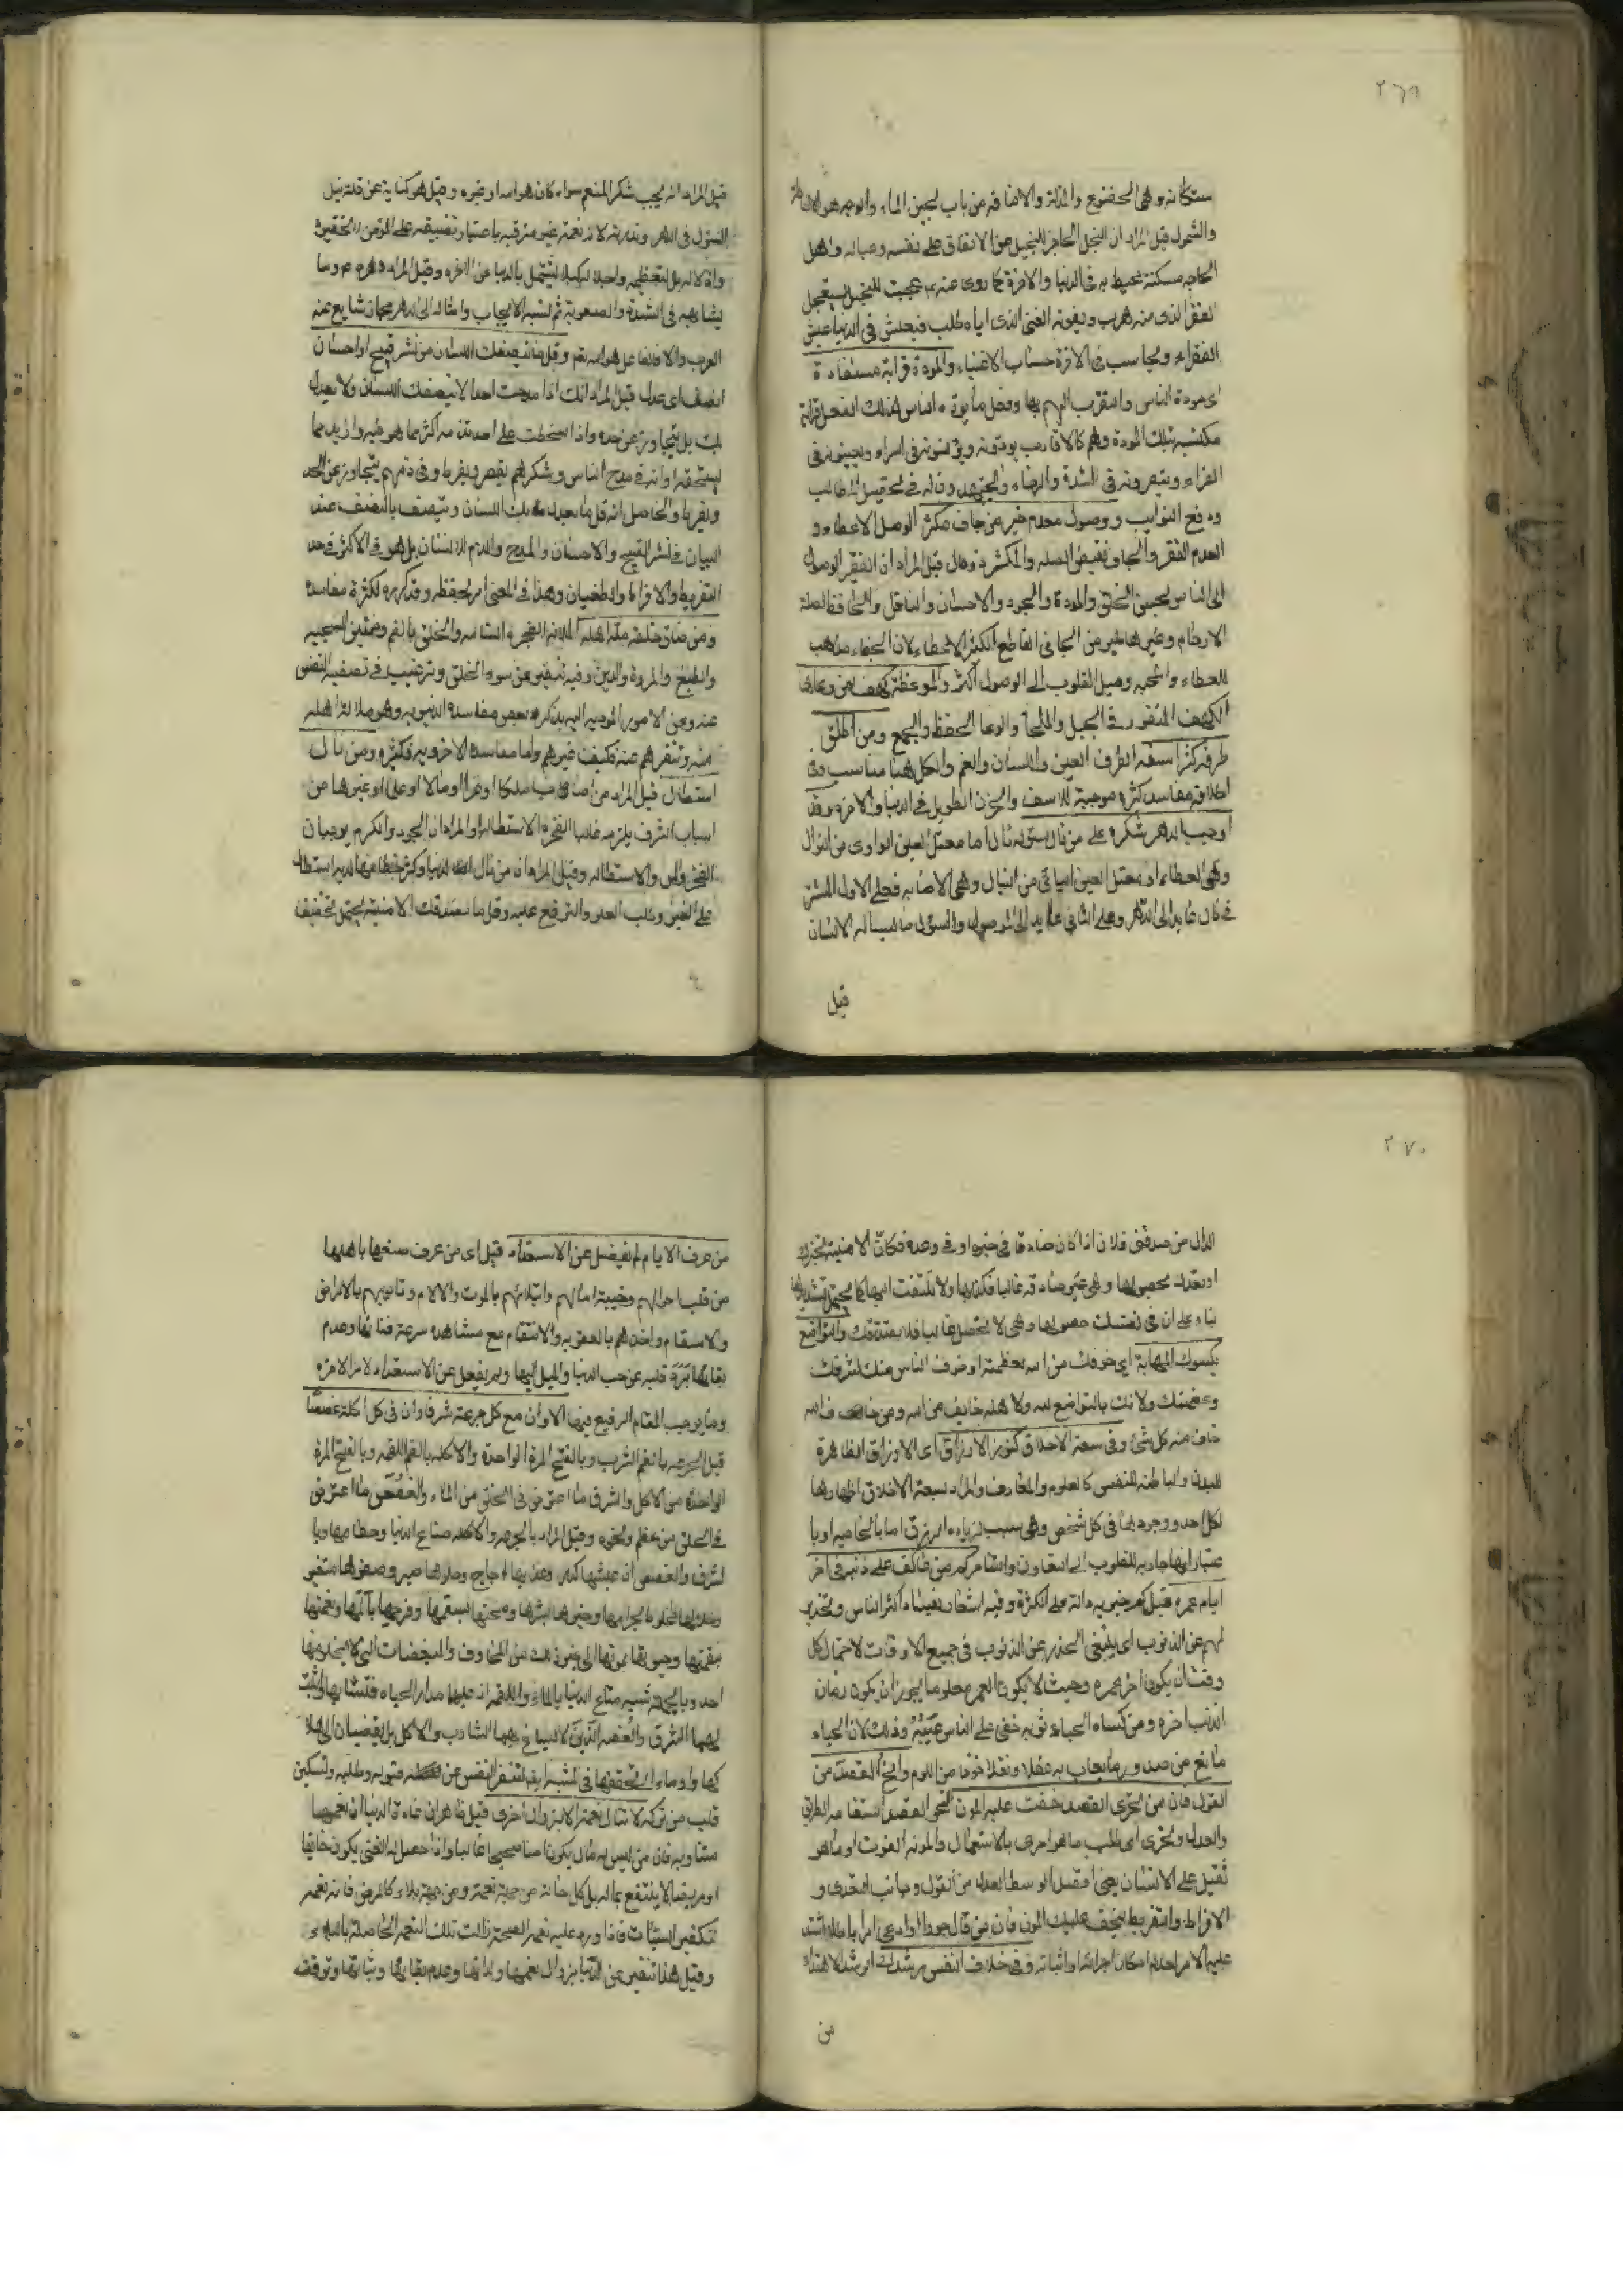 ٢٦٩
ستكانة وهى الخضوع والمذلة والاضافة من باب لجين الماء والوجه هو الاحاطة
والشمول قيل المراد ان البخل الحاجز للبخيل عن الانفاق على نفسه وعياله واهل
الحاجه مسكنة يحيط به فى الدنيا والاخرة كما روى عنه ع عجبت للبخيل يستعجل
الفقر الذى منه هرب ويفوته الغنى الذى اياه طلب فيعيش فى الدنيا عيش
الفقراء ويحاسب فى الاخرة حساب الاغنياء والمودة قرابة مستفادة
اى مودة الناس والتقرب اليهم بها وفعل ما يوده الناس فذلك الفعل قرابة
مكتسبة بتلك المودة وهم كالاقارب يودونه ويؤنسونه فى السراء ويعينونه فى
الضراء وينصرونه فى الشدة والرخاء ويجتهدون له فى تحصيل المطالب
ودفع النوايب ووصول معدم خير من جاف مكثر الوصل الاعطاء و
العدم الفقر والجاف نقيض الصله والمكثر ذو مال قيل المراد ان الفقير الوصول
الى الناس بحسن الخلق والمودة والجود والاحسان والناقل والحافظ لصلة
الارحام وغيرها خير من الجافى القاطع المكثر الاعطاء لان الجفاء يذهب
العطاء والمحبه وميل القلوب الى الوصول اكثر والموعظة كهف لمن وعاها
الكهف المنقور فى الجبل والملجأ والوعا الحفظ والجمع ومن اطلق
طرفه كثر اسفه الطرف العين واللسان والفم والكل هنا مناسب وفى
اطلاقه مفاسد كثيره موجبة للاسف والحزن الطويل فى الدنيا والاخره وقد
اوجب الدهر شكره على من نال سؤله نال اما معتل العين الواوى من النوال
وهى العطاء او معتل العين اليائى من النيال وهى الاصابه فعلى الاول المستتر
فى نال عايد الى الدهر وعلى الثانى عايد الى الموصول والسؤل ما يساله الانسان
قيل
قيل المراد انه يجب شكر المنعم سواء كان هو الله او غيره وقيل هو كناية عن قلة نيل
السؤل فى الدهر وندرته لانه نعمة غير مترقبه باعتبار تضييقه على المؤمن لتحقيره
واذلاله بل لتعظيمه واجلاله لكيلا يشتغل بالدنيا عن الاخره وقيل المراد
يشابهه فى الشدة والصعوبة ثم نسبة الايجاب وامثاله الى الدهر مجاز شايع عند
العرب والا فالفاعل هو الله تعم وقل ما ينصفك اللسان من نشر قبيح او احسان
انصف اى عدل قيل المراد انك اذا مدحت احدا لا ينصفك اللسان ولا يعدل
بك بل يتجاوز عن حده واذا سخطت على احد تذمه اكثر مما هو فيه وازيد مما
يستحقه او انه فى مدح الناس وشكرهم يقصر ويفرط وفى ذمهم يتجاوز عن الحد
ويفرط والحاصل انه قل ما يعدل بك اللسان ويتصف بالنصف عند
البيان فى نشر القبيح والاحسان والمدح والذم للانسان بل هو فى الاكثر فى حد
التفريط والافراط والطغيان وهذا فى المعنى امر بحفظه وقد كرره لكثرة مفاسده
ومن ضاق خلقه مله اهله الملالة الضجر والسامه والخلق بالضم وضمتين السجيه
والطبع والمروة والدين وفيه تنفير عن سوء الخلق وترغيب فى تصفية النفس
عنه وعن الامور المؤديه اليه بذكر بعض مفاسده الدنيويه وهو ملالة اهله
منه وتنفرهم عنه فكيف غيرهم واما مفاسده الاخرويه فكثيره ومن نال
استطال قيل المراد من اصاب ملكا او عزا او مالا او علما او غيرها من
اسباب الشرف يلزمه غالبا الفخر والاستطالة او المراد ان الجود والكرم يوجبان
الفخر والمن والاستطاله وقيل المراد ان من نال الدنيا وكثر حظه منها لديه استطال
على الغير وطلب العلو والترفع عليه وقل ما تصدقك الامنية يحتمل تخفيف
٢٧٠
الدال من صدقنى فلان اذا كان صادقا فى خبره او فى وعده فكان الامنية تخبرك
او تعدك بحصولها وهى غير صادقه غالبا فكذبها ولا تلتفت اليها كما يحتمل تشديدها
بناء على ان فى نفسك حصولها وهى لا يحصل غالبا فلا يصدقك والتواضع
يكسوك المهابة اى خوفك من الله بعظمته او خوف الناس منك لشرفك
وعظمتك ولانك بالتواضع لله ولاهله خايف من الله ومن خاف الله
خاف منه كل شئ وفى سعة الاخلاق كنوز الارزاق اى الارزاق الظاهرة
للبدن والباطنه للنفس كالعلوم والمعارف والمراد بسعة الاخلاق اظهارها
لكل احد ووجودها فى كل شخص وهى سبب لزياده الرزق اما بالخاصيه او با
عتبار انها جاذبه للقلوب الى التعاون والتشارك كم من عاكف على ذنبه فى اخر
ايام عمره قيل كم خبريه دالة على الكثرة وفيه اشعار باكثر الناس وتحذير
لهم عن الذنوب اى ينبغى الحذر عن الذنوب فى جميع الاوقات لاحتمال كل
وقت ان يكون اخر عمره وحيث لا يكون العمر معلوما يجوز ان يكون زمان
الذنب اخره ومن كساه الحياء ثوبه خفى على الناس عيبه وذلك لان الحياء
مانع من صدور ما يعاب به عقلا ونقلا خوفا من اللوم وانح القصد من
القول فان من تحرى القصد خفت عليه المؤن النحو القصد استقامه الطريق
والعدل وتحرى اى طلب ما هو احرى بالاستعمال والمؤنه القوت او ما هو
ثقيل على الانسان يعنى اقصد الوسط العدل من القول وجانب التعدى و
الافراط والتفريط ليخف عليك المؤن فان من قال جورا او ادعى امرا باطلا اشتد
عليه الامر لعدم امكان اجرائه واثباته وفى خلاف النفس رشدك الرشد الاهتداء
من
من عرف الايام لم يغفل عن الاستعداد قيل اى من عرف صنعها باهلها
من قلب احوالهم وخيبة امالهم وابتلائهم بالموت والالام وتاديبهم بالامراض
والاسقام واخذهم بالعقوبه والانتقام مع مشاهدة سرعة فنائها وعدم
بقائها برد قلبه عن حب الدنيا والميل اليها ولم يغفل عن الاستعداد لامر الاخره
وما يوجب المقام الرفيع فيها الا وان مع كل جرعة شرقا وان فى كل اكلة غصصا
قيل الجرعه بالضم الشرب وبالفتح المرة الواحدة والاكله بالضم اللقمه وبالفتح المرة
الواحدة من الاكل والشرق ما اعترض فى الحلق من الماء والغصص ما اعترض
فى الحلق من عظم ونحوه وقيل المراد بالجرعه والاكله متاع الدنيا وحطامها وبا
لشرق والغصص ان عيشها كدر وعذبها اجاج وحلوها صبر وصفوها متغير
وحلالها مخلوط بحرامها وخيرها بشرها وصحتها بسقمها وفرحها بآلامها ونعمتها
بنقمتها وحيوتها بموتها الى غير ذلك من المخاوف والمبغضات التى لا يخلو منها
احد وبالجملة تشبيه متاع الدنيا بالماء واللقمه اذ عليها مدار الحياه فنسبتها واثبت
لهما الشرق والغصه الذين لا يسيغ بهما الشارب والاكل بل يفضيان الى هلا
كها واومأ الى تحققها فى المشبه ليتنفر النفس عن وطلبه وتسكين
قلب من تركه لا تنال نعمة الا بزوال اخرى قيل ظاهره ان عادة الدنيا ان نعمها
متناوبه فان من ليس له مال يكون امنا صحيحا غالبا واذا حصل له الغنى يكون خائفا
او مريضا لا ينتفع بماله بل كل حالة من جهة نعمة ومن جهة بلاء كالمرض فانه نعمه
لتكفير السيئات فاذا ورد عليه نعمة الصحة زالت تلك النعمه الحاصلة بالبلاء
وقيل هذا تنفير عن الدنيا بزوال نعمها ولذاتها وعدم بقائها وثباتها وتوقف